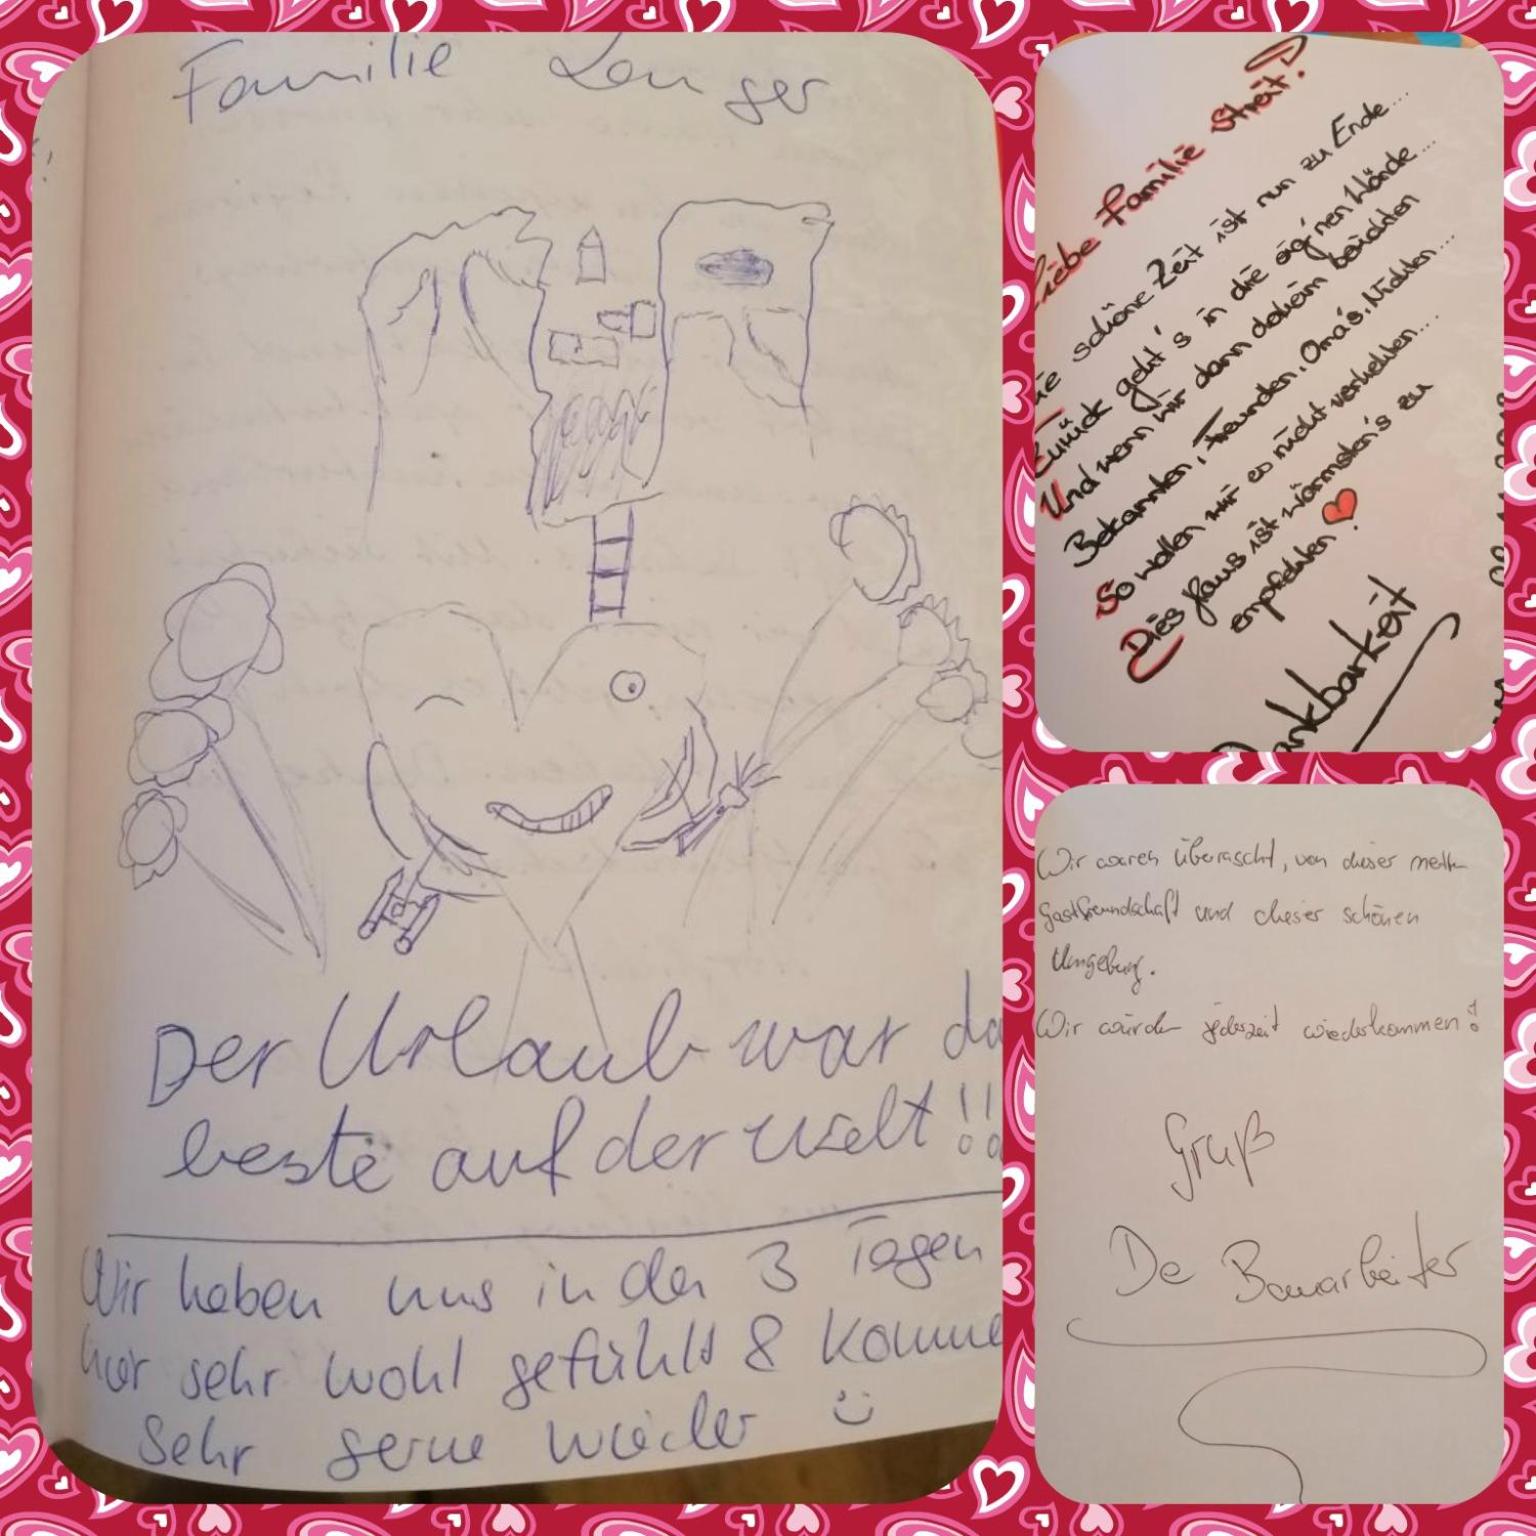 Familie Langer
Der Urlaub war da
beste auf der Welt!!
Wir haben uns in den 3 Tagen
hier sehr wohl gefühlt & komme
sehr gerne wieder
Liebe Familie Streit!
ie schöne Zeit ist nun zu Ende...
Zurück geht's in die eig'nen Wände...
Und wenn wir dann daheim berichten
Bekannten, Freunden, Oma's, Nichten...
So wollen wir es nicht verhehlen...
Dies Haus ist wärmsten's zu
empfehlen!
ankbarkeit
Wir waren überascht, von dieser netten
Gastfreundschaft und dieser schönen
Umgebung.
Wir würden jederzeit wiederkommen!
Gruß
De Bauarbeiter